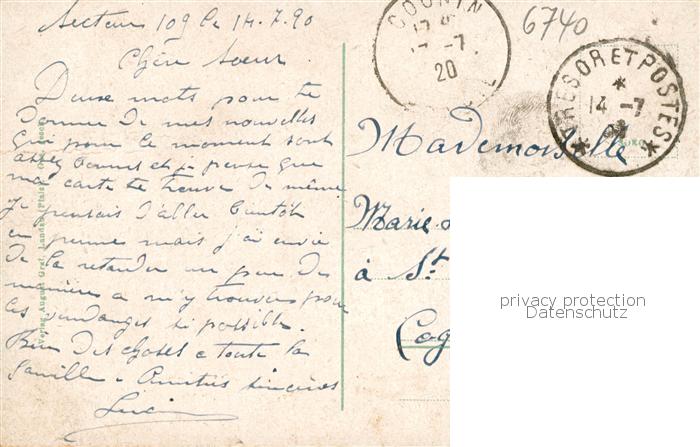 Secteur 109 le 14.7.20
Chère Soeur
Deux mots pour te
donner de mes nouvelles
que pour le moment sont
assez bonnes et je pense que
ma carte te trouve de même
je pensais d'aller bientôt
en perme mais j'ai envie
de la retarder un peu de
manières a m'y trouver pour
les vendanges si possible.
Bien des choses a toute la
famille. Amitiés sincères
Lucien
Verlag August Graf, Landau (Pfalz)
COGNIN
17 -7
20
6740
TRESOR ET POSTES
14 -7
Mademoiselle
Marie
à St
Cog
privacy protection
Datenschutz